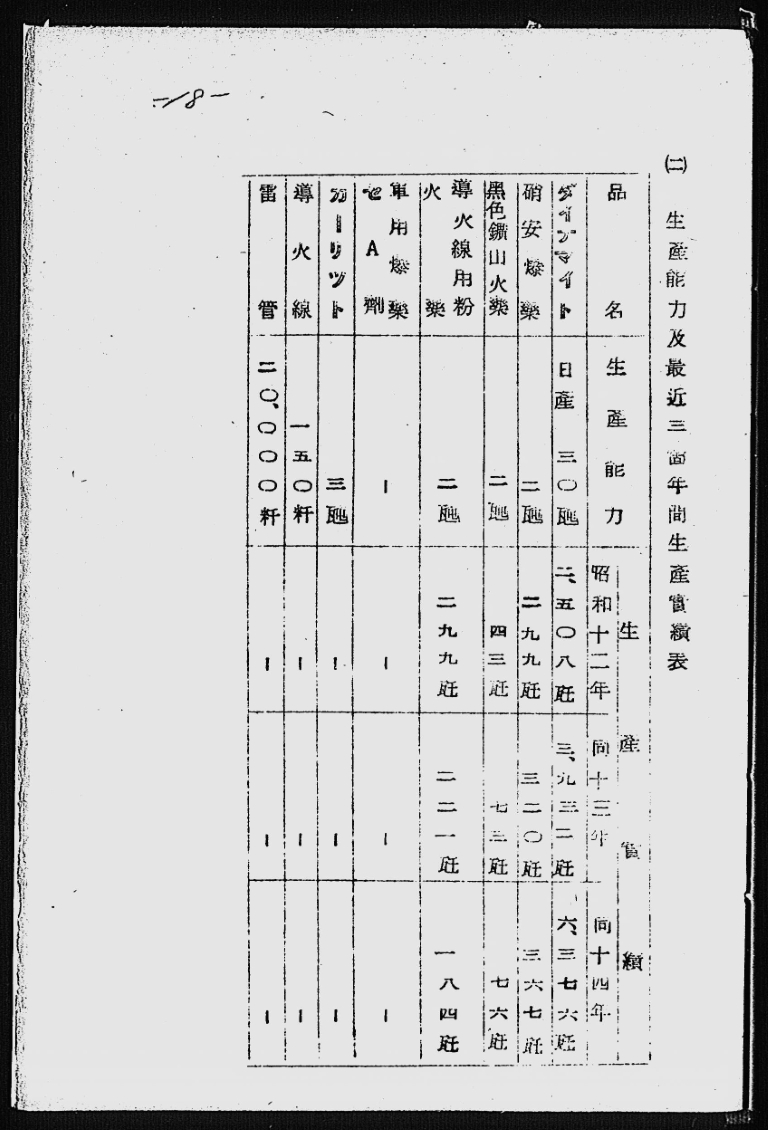 -18-
㈡ 生産能力及最近三箇年間生産實績表
品名 生産能力 生産實績
昭和十二年 同十三年 同十四年
ダイナマイト 日産 三〇瓲 二、五〇八瓩 三、九三二瓩 六、三七六瓩
硝安爆藥 二瓲 二九九瓩 三二〇瓩 三六七瓩
黑色鑛山火藥 二瓲 四三瓩 七三瓩 七六瓩
導火線用粉火藥 二瓲 二九九瓩 二二一瓩 一八四瓩
軍用爆藥セA劑 ー ー ー ー
カーリット 三瓲 ー ー ー
導火線 一五〇粁 ー ー ー
雷管 二〇、〇〇〇粁 ー ー ー